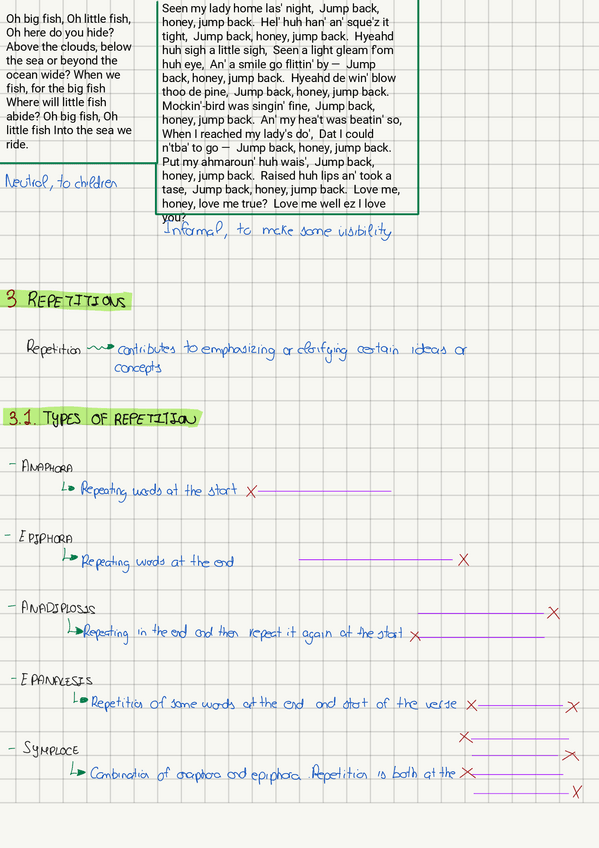 Oh big fish, Oh little fish,
Oh here do you hide?
Above the clouds, below
the sea or beyond the
ocean wide? When we
fish, for the big fish
Where will little fish
abide? Oh big fish, Oh
little fish Into the sea we
ride.
Neutral, to children
Seen my lady home las' night, Jump back,
honey, jump back. Hel' huh han' an' sque'z it
tight, Jump back, honey, jump back. Hyeahd
huh sigh a little sigh, Seen a light gleam f'om
huh eye, An' a smile go flittin' by — Jump
back, honey, jump back. Hyeahd de win' blow
thoo de pine, Jump back, honey, jump back.
Mockin'-bird was singin' fine, Jump back,
honey, jump back. An' my hea't was beatin' so,
When I reached my lady's do', Dat I could
n'tba' to go — Jump back, honey, jump back.
Put my ahmaroun' huh wais', Jump back,
honey, jump back. Raised huh lips an' took a
tase, Jump back, honey, jump back. Love me,
honey, love me true? Love me well ez I love
you?
Informal, to make some visibility
3 REPETITIONS
Repetition contributes to emphasizing or clarifying certain ideas or
concepts
3.1. TYPES OF REPETITION
- ANAPHORA
Repeating words at the start X
- EPIPHORA
Repeating words at the end X
- ANADIPLOSIS X
Repeating in the end and then repeat it again at the start X
- EPANALESIS
Repetition of some words at the end and start of the verse X X
X
- SYMPLOCE X
Combination of anaphora and epiphora. Repetition is both at the X
X